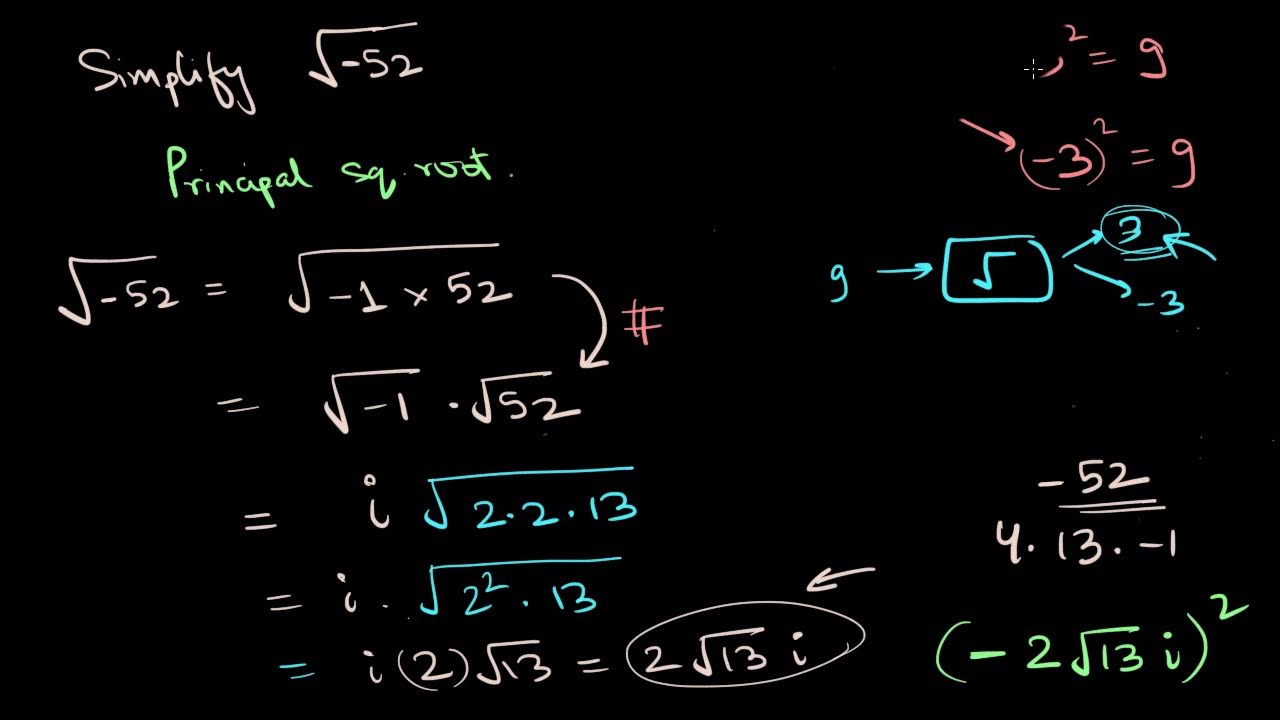 Simplify √-52
Principal sq. root.
√-52 = √-1 × 52
#
= √-1 · √52
= i √2·2·13
= i · √2² · 13
= i(2)√13 = 2√13 i
² = 9
(-3)² = 9
9 → √ 3
-3
-52
4 · 13 · -1
(-2√13 i)²